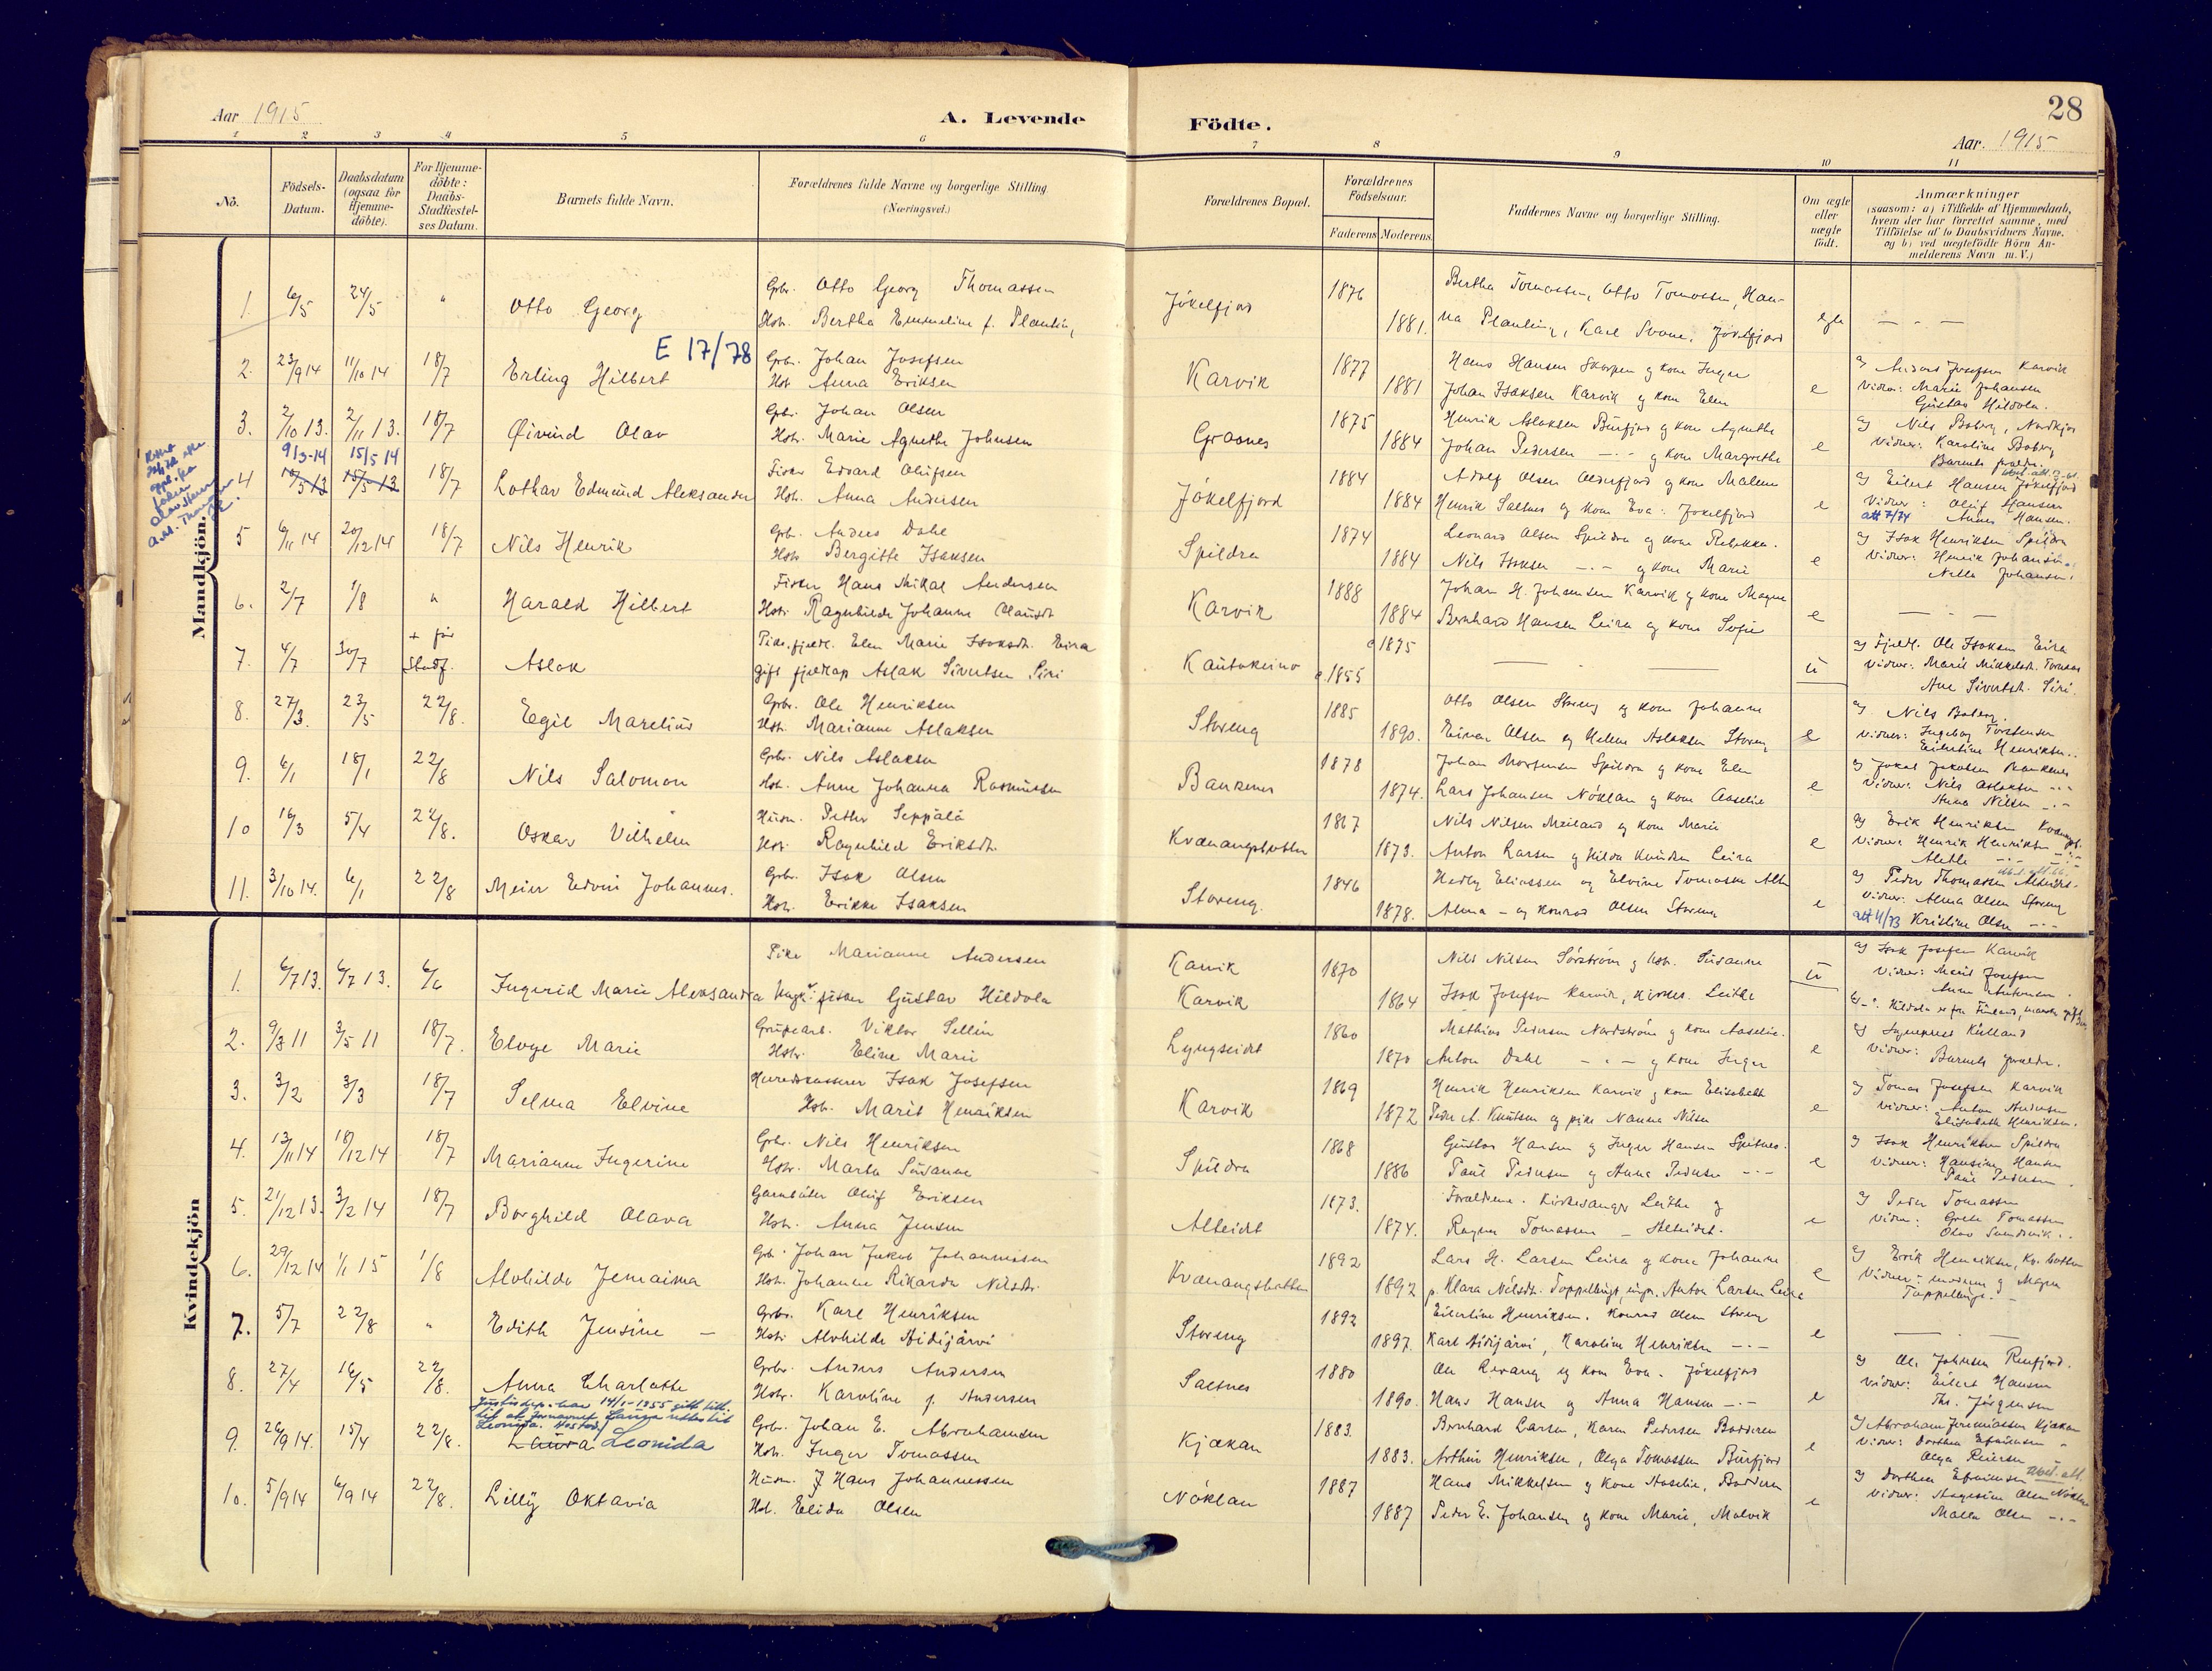 28
Aar 1915
A. Levende Födte.
Aar. 1915
1 2 3 4 5 6 7 8 9 10 11
No.
Födsels-Datum.
Daabsdatum (ogsaa for Hjemme-döbte).
For Hjemme-döbte: Daabs-Stadfæstel-ses Datum.
Barnets fulde Navn.
Forældrenes fulde Navne og borgerlige Stilling. (Næringsvei.)
Forældrenes Bopæl.
Forældrenes Födselsaar.
Faderens Moderens.
Faddernes Navne og borgerlige Stilling.
Om ægte eller uægte födt.
Anmærkninger
(saasom: a) i Tilfælde af Hjemmedaab,
hvem der har forrettet samme, med
Tilföielse af to Daabsvidners Navne.
og b) ved uægtefödte Börn An-
melderens Navn m. V.)
Mandkjön.
1. 6/5 24/5 " Otto Georg
Gbr. Otto Georg Thomassen
Hstr. Bertha Emmeline f. Planting
Jökelfjord 1876 1881.
Bertha Tomassen, Otto Tomassen, Han-
na Planting, Karl Svane, Jökelfjord
egte — " —
E 17/78
2. 23/9 14 11/10 14 18/7 Erling Hilbert
Gbr. Johan Josefsen
Hstr Anna Eriksen
Karvik 1877 1881
Hans Hansen Skorpen og kone Inger
Johan Isaksen Karvik og kone Elen
e
a) Anders Josefsen Karvik
Vidner: Marie Johansen
Gustav Hildola.
3. 2/10 13. 2/11 13. 18/7 Øivind Olav
Gbr. Johan Olsen
Hstr. Marie Agnethe Johnsen
Graanes 1875 1884
Henrik Aslaksen Burfjord og kone Agnethe
Johan Pedersen —"— og kone Margrethe
e
a) Nils Boberg
Vidner: Karoline Boberg
Barnets forældr.
9/3-14 15/5 14
4 15/5 13 15/5 13 18/7 Lothar Edmund Aleksander
Fisker Edvard Olufsen
Hstr. Anna Andersen
Jökelfjord 1884 1884
Adolf Olsen Alderfjord og kone Malene
Henrik Saltnes og kone Eva. Jökelfjord
e
a) Eilert Hansen Jökelfjord
Vidner: Oluf Hansen
att 7/74 Anna Hansen.
5 6/11 14 20/12 14 18/7 Nils Henrik
Gbr. Anders Dahl
Hstr Bergitte Isaksen
Spildra 1874 1884
Leonard Olsen Spildra og kone Rebekka.
Nils Isaksen —"— og kone Marie
e
a) Isak Henriksen Spildra
Vidner: Henrik Johansen
Nella Johansen.
6. 2/7 1/8 " Harald Hilbert
Fisker Hans Mikal Andersen
Hstr. Ragnhilde Johanne Olausdt.
Karvik 1888 1884
Johan H. Johansen Karvik og kone Magna
Bernhard Hansen Leira og kone Sofie
e — " —
7. 4/7 30/7 + før Stadf. Aslak
Pike, fjeldl. Elen Marie Isaksdt. Eira
gift fjeldlap Aslak Sivertsen Siri
Kautokeino 1875 1855
— " —
u
a) Fjeldl. Ole Isaksen Eira
Vidner: Marit Mikkelsdt.
Ane Sivertsdt. Siri.
8. 27/3. 23/5 22/8. Eegil Marelius
Gbr. Ole Henriksen
Hstr. Marianne Aslaksen
Storeng 1885 1890.
Otto Olsen Storeng og kone Johanne
Einar Olsen og Helene Aslaksen Storeng
e
a) Nils Boberg.
Vidner: Ingeborg Torstensen
Eilertine Henriksen.
9. 6/1 18/1 22/8 Nils Salomon
Gbr. Nils Aslaksen
Hstr. Anne Johanna Rasmussen
Bankenes 1878 1874.
Johan Mortensen Spildra og kone Elen
Lars Johansen Nöklan og kone Aaselie
e
a) Jakob Jakobsen Bankenes
Vidner: Nils Aslaksen —"—
Anna Nilsen —"—
10 16/3 5/4 22/8. Oskar Vilhelm
Husm. Petter Seppälä
Hstr. Ragnhild Eriksdt.
Kvænangsbotten 1867 1873.
Nils Nilsen Meiland og kone Marie
Anton Larsen og Hilda Knudsen Leira
e
a) Erik Henriksen Kvænangsb.
Vidner: Henrik Henriksen —"—
Alethe —"—
11. 3/10 14. 6/1 22/8 Meier Edvin Johannes.
Gbr. Isak Olsen
Hstr. Erikke Isaksen
Storeng. 1846 1878.
Hedly Eliassen og Elvine Tomassen Alt
Alma — og Konrad Olsen Storeng
e
a) Peder Thomassen Alteidet.
Vidner: Alma Olsen Storeng
att 4/73 Kristine Olsen —"—
Kvindekjön
1. 6/7 13. 6/7 13. 6/6 Ingerid Marie Aleksandra
Pike Marianne Andersen
Ungk. fisker Gustav Hildola
Karvik
Karvik
1870 1864
Nils Nilsen Sörström og hstr. Susanne
Isak Josefsen Karvik, kirkes. Leithe
u
a) Isak Josefsen Karvik
Vidner: Marit Josefsen
Anna Antonsen.
Hildola er fra Finland
2. 9/3 11 3/5 11 18/7. Elvye Marie
Grubearb. Viktor Sellin
Hstr. Eline Marie
Lyngseidet 1860 1870
Mathias Pedersen Nordström og kone Aaselie.
Anton Dahl —"— og kone Inger
e
a) Sogneprest Kulland
Vidner: Barnets forældr.
3. 3/2 3/3 18/7 Selma Elvine
Herredskasserer Isak Josefsen
Hstr. Marit Henriksen
Karvik 1869 1872
Henrik Henriksen Karvik og kone Elisabeth
Peder A. Knutsen og pike Nanna Nilsen
e
a) Tomas Josefsen Karvik
Vidner: Anton Andersen
Elisabeth Henriksen.
4. 13/11 14 18/12 14 18/7 Marianne Ingerine
Gbr. Nils Henriksen
Hstr. Marta Susanne
Spildra 1868 1886
Gustav Hansen og Inger Hansen Spitnes.
Paul Pedersen og Anna Pedersen —"—
e
a) Isak Henriksen Spildra
Vidner: Hansine Hansen
Paul Pedersen.
5. 21/12 13. 3/2 14 18/7 Borghild Olava
Garnbøter Oluf Eriksen
Hstr. Anna Jensen
Alteidet 1873. 1874.
Forældrene. Kirkesanger Leithe og
Ragna Tomassen — Alteidet.
e
a) Peder Tomassen
Vidner: Grete Tomassen
Olav
6. 29/12 14 1/1 15 1/8 Alvhilda Jemaima
Gbr. Johan Jakob Johannessen
Hstr. Johanne Rikarda Nilsdt.
Kvænangsbotten 1892 1892
Lars H. Larsen Leira og kone Johanne
p. Klara Nilsdt. Toppelbugt, ungk. Anton Larsen Leira
e
a) Erik Henriksen, Kv. botten
Vidner: moderen og Magna
Toppelbugt.
7. 5/7 22/8 " Edith Jensine —
Gbr. Karl Henriksen
Hstr. Alvhilde Aidijärvi
Storeng 1892 1897.
Eilertine Henriksen. Konrad Olsen Storeng
Karl Aidijärvi, Karoline Henriksen —"—
e — —
8. 27/4 16/5 22/8. Anna Charlotte
Gbr. Anders Andersen
Hstr. Karoline f. Andersen
Saltnes 1880 1890.
Ole Revang og kone Eva. Jökelfjord
Hans Hansen og Anna Hansen —"—
e
a) Ole Johnsen Reinfjord.
Vidner: Eilert Hansen
Th. Jörgensen
Justisdep. har 14/1-1955 gitt till.
til at fornavnet Laura rettes til
Leonida. Hostad
9. 26/9 14. 15/4 22/8. Laura Leonida
Gbr. Johan E. Abrahamsen
Hstr. Inger Tomassen
Kjækan 1883. 1883.
Bernhard Larsen, Karen Pedersen Badderen
Arthur Henriksen, Olga Tomassen Burfjord
e
a) Abraham Jeremiassen Kjækan
Vidner: Dorthea Efraimsen "
Olga Peiersen
10. 5/9 14 6/9 14 22/8. Lilly Oktavia
Husm. J Hans Johannessen
Hst. Elida Olsen
Nöklan 1887 1887
Hans Mikkelsen og kone Aaselie, Badderen
Peder E. Johansen og kone Marie, Malvik
e
a) Dorthea Efraimsen
Vidner: Aagesine Olsen Nöklan
Malla Olsen —"—